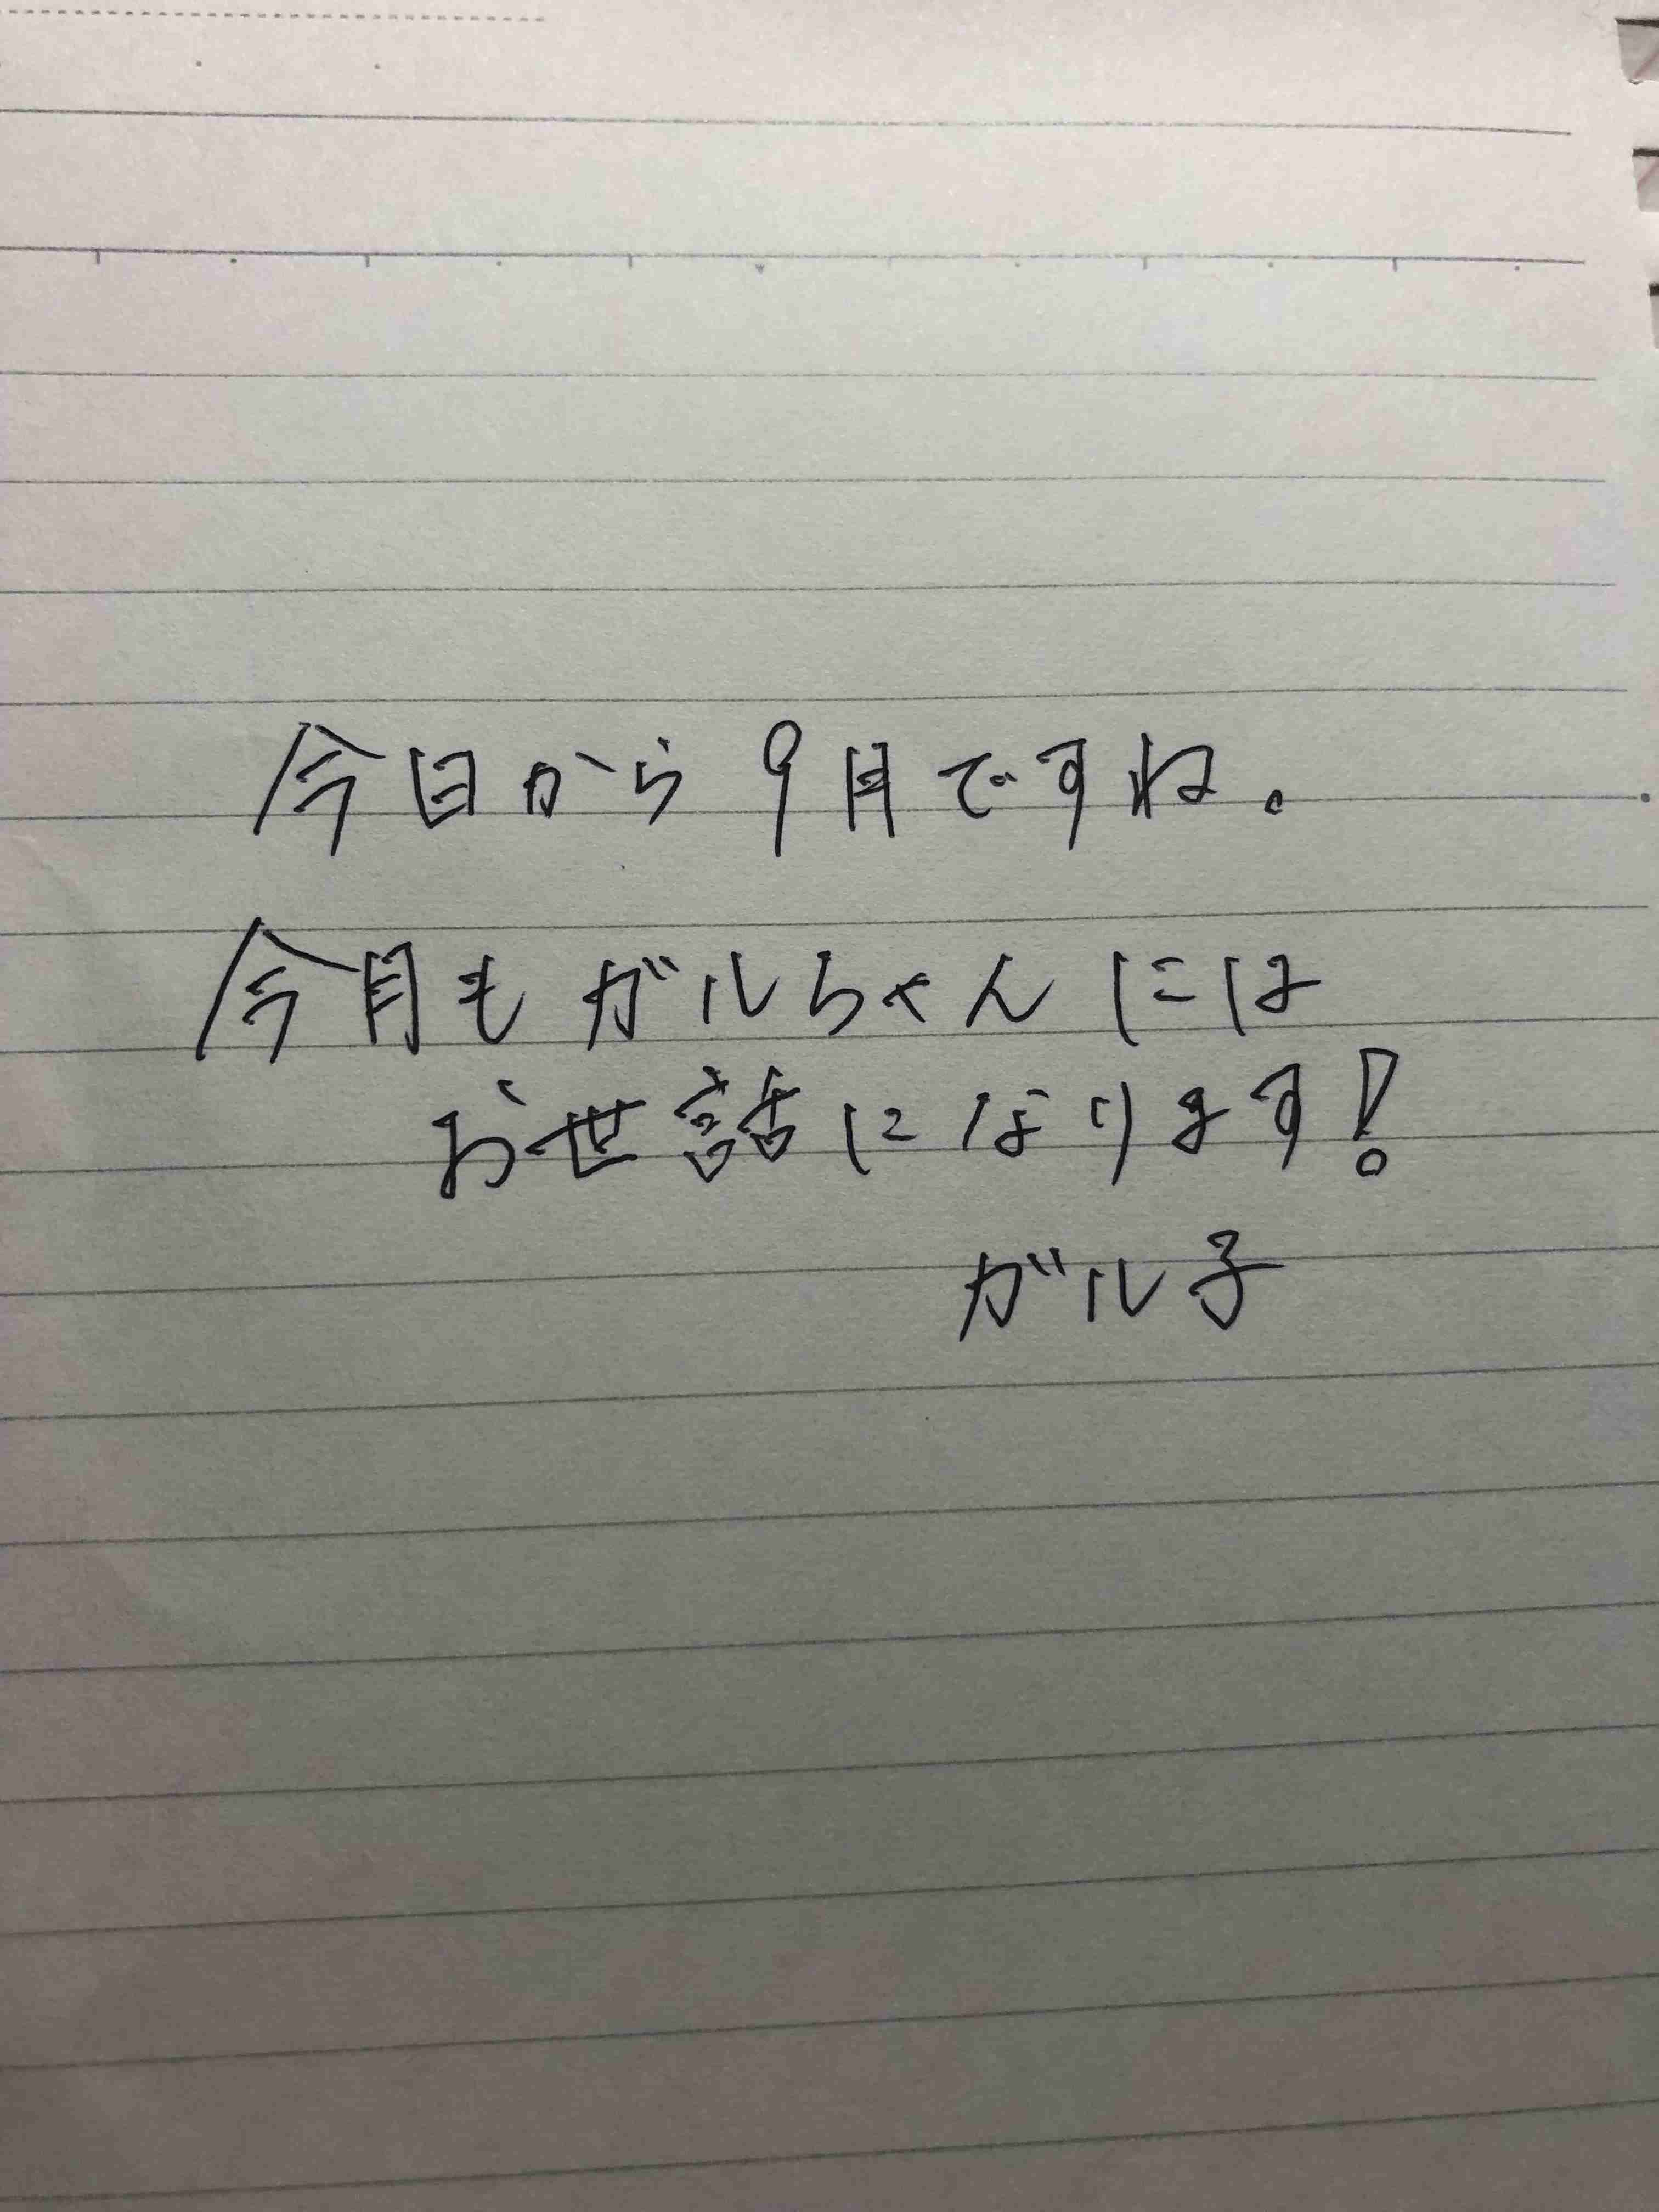 今日から9月ですね。
今月もガルちゃんには
お世話になります!
ガル子